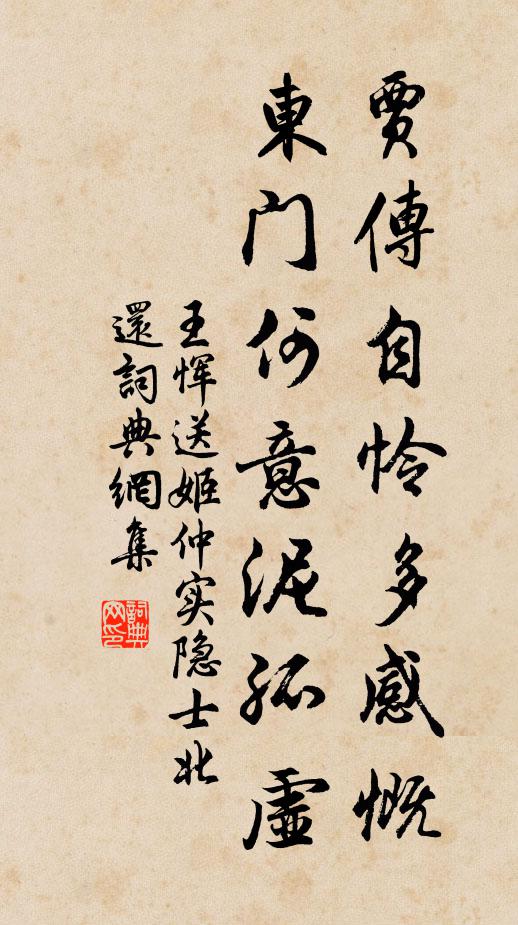 賈傅自怜多感慨
東門何意泥孤虛
王惲送姬仲实隐士北
還詞典網集
詞典網印